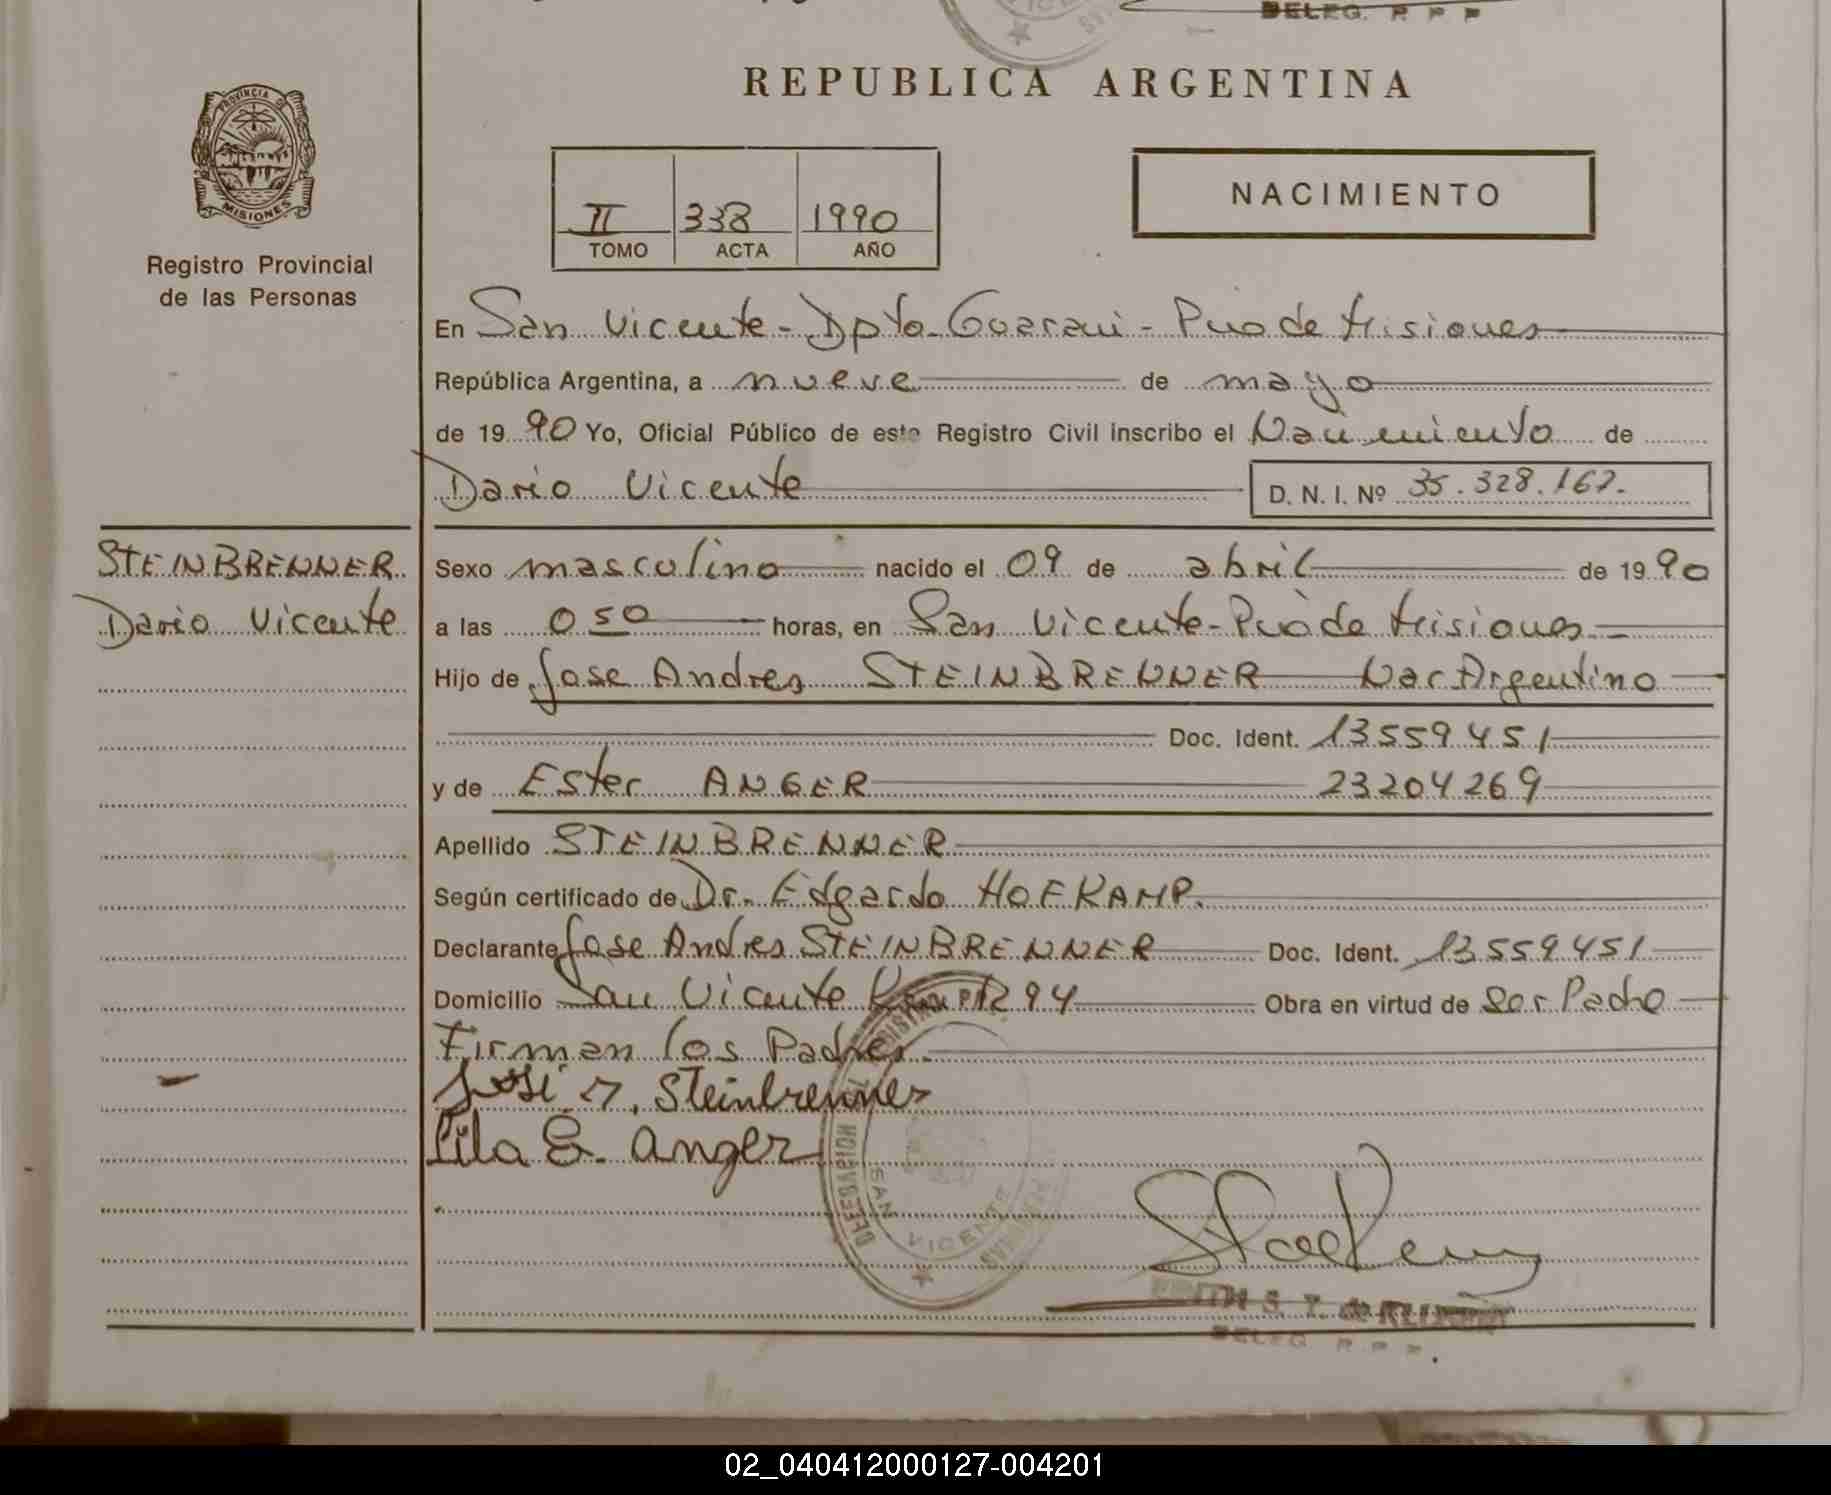 DELEG. R P P
REPUBLICA ARGENTINA
PROVINCIA DE
MISIONES
Registro Provincial
de las Personas
II 338 1990
TOMO ACTA AÑO
NACIMIENTO
En San Vicente - Dpto. Guarani - Pcia de Misiones
República Argentina, a nueve de mayo
de 1990 Yo, Oficial Público de este Registro Civil inscribo el Nacimiento de
Dario Vicente D. N. I. Nº 35.328.167.
STEINBRENNER
Dario Vicente
Sexo masculino nacido el 09 de abril de 1990
a las 0 50 horas, en San Vicente - Pcia de Misiones
Hijo de Jose Andres STEINBRENNER Nac Argentino
Doc. Ident. 13559451
y de Ester ANGER 23204269
Apellido STEINBRENNER
Según certificado de Dr. Edgardo HOFKAMP.
Declarante Jose Andres STEINBRENNER Doc. Ident. 13559451
Domicilio San Vicente 1294 Obra en virtud de Ser Padre
Firman los Padres
José A. Steinbrenner
Lila E. Anger
DELEGACION
SAN VICENTE
S. T. de
DELEG R P P
02_040412000127-004201